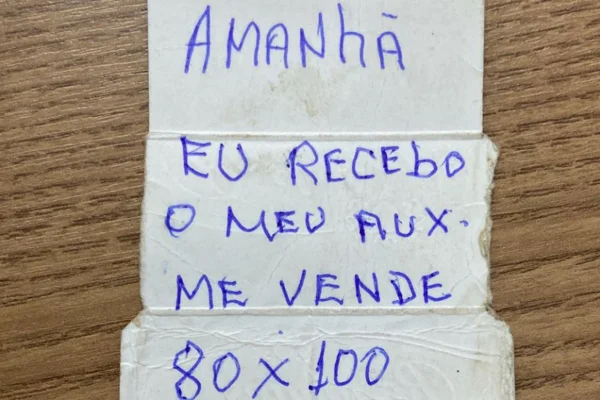 AMANhÃ
EU RECEbO
O MEU AUX.
ME VENDE
80 x 100